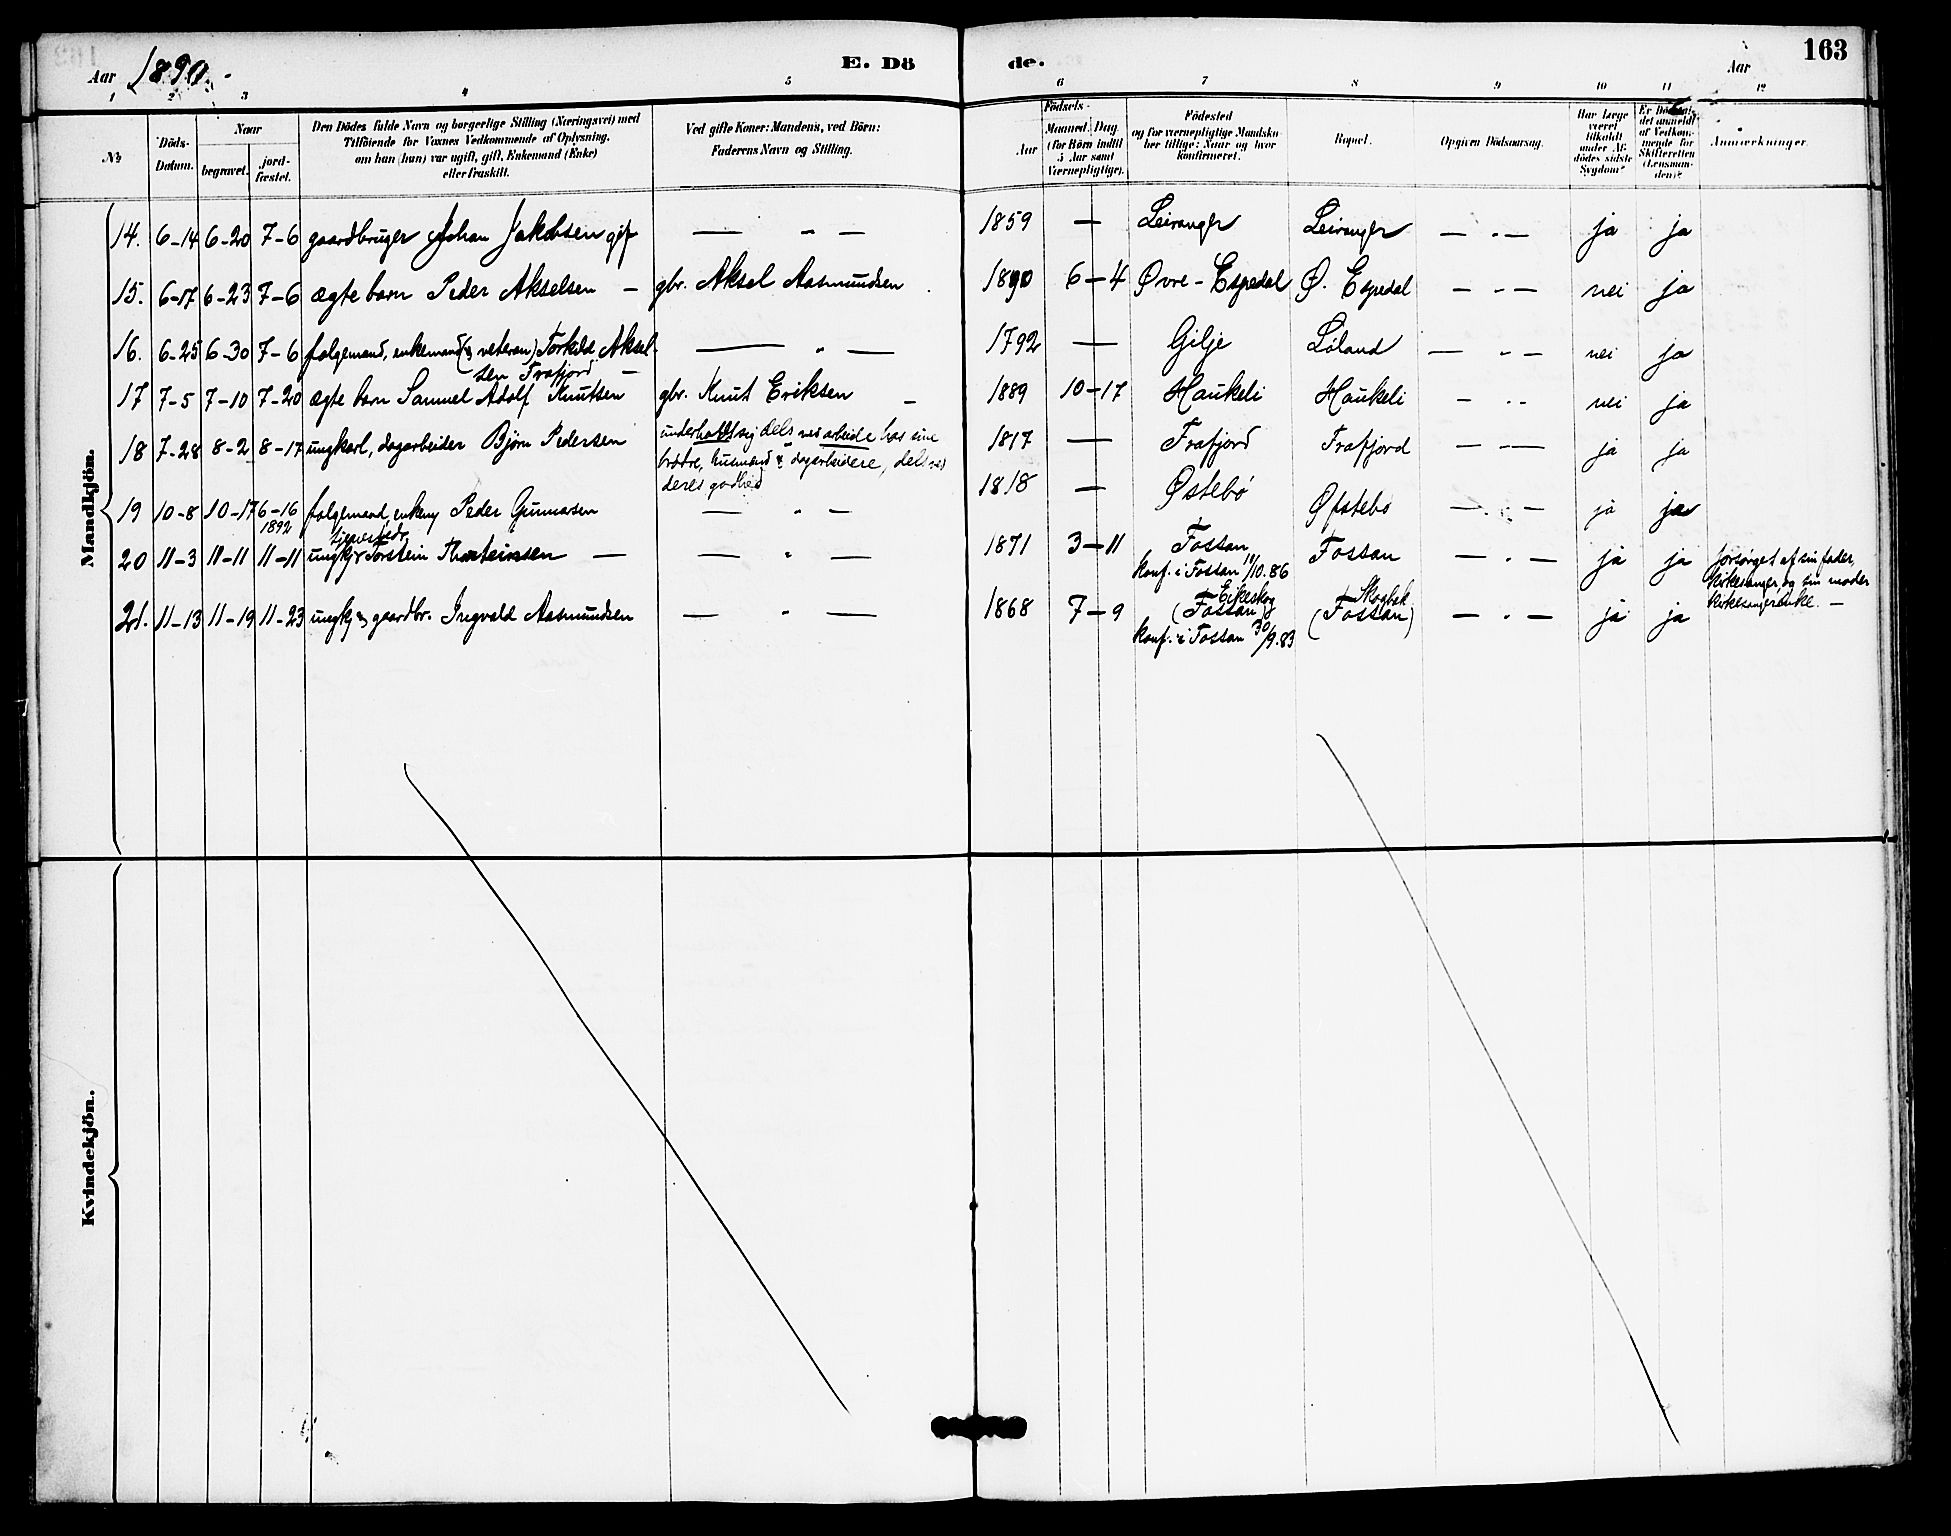 Aar 1890.
E. Dö
de.
Aar
163
1 2 3 4 5 6 7 8 9 10 11 12
No
Döds-
Datum.
Naar
begravet.
jord-
fæstet.
Den Dödes fulde Navn og borgerlige Stilling (Næringsvei) med
Tilföiende for Voxnes Vedkommende af Oplysning,
om han (hun) var ugift, gift, Enkemand (Enke)
eller fraskilt.
Ved gifte Koner: Mandens, ved Börn:
Faderens Navn og Stilling.
Födsels-
Aar
Maaned. Dag
(for Börn indtil
5 Aar samt
Værnepligtige).
Födested
og for værnepligtige Mandskaber tillige: Naar og hvor
konfirmeret.
Bopæl.
Opgiven Dödsaarsag.
Har Læge
været
tilkaldt
under Afdödes sidste
Sygdom?
Anmærkninger.
Mandkjön.
14. 6-14 6-20 7-6 gaardbruger Johan Jakobsen gift — " — 1859 — Leiranger Leiranger — " — ja ja
15. 6-17 6-23 7-6 ægte barn Peder Akselsen — gbr. Aksel Aasmundsen 1890 6-4 Øvre-Espedal Ø. Espedal — " — nei ja
16. 6-25 6-30 7-6 folgemand, enkemand (& veteran) Torkild Aksel- — " — 1792 — Gilje Løland — " — nei ja
sen Frafjord —
17 7-5 7-10 7-20 ægte barn Samuel Adolf Knutsen gbr. Knut Eriksen — 1889 10-17 Haukeli Haukeli — " nei ja
18 7-28 8-2 8-17 ungkarl, dagarbeider Bjørn Pedersen underholdt sig dels ved arbeide hos sine 1817 — Frafjord Frafjord — " — ja ja
brødre, husmænd & dagarbeidere, dels ved
deres godhed
19 10-8 10-17 6-16 folgemand, enkem Peder Gunnarsen — " — 1818 — Østebø Øfstebø — " — ja ja
1892
20 11-3 11-11 11-11 ungkj Torstein Thorsteinsen — — " — 1871 3-11 Fossan Fossan — " — ja ja forsørget af sin fader,
konf. i Fossan 11/10.86
kirkesanger og sin moder
kirkesangerenke. —
21. 11-13 11-19 11-23 ungkj & gaardbr. Ingvald Aasmundsen — " — 1868 7-9 Eikeskog (Fossan) Skogbak (Fossan) — " — ja ja
konf. i Fossan 30/9.83
Kvindekjön.